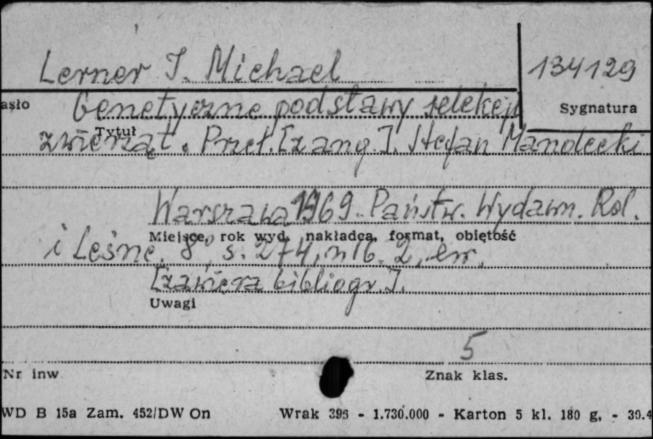 Lerner I. Michael
134129
asło
Sygnatura
Genetyczne podstawy selekcji
Tytuł
zwierząt. Przeł. [z ang.]. Stefan Manolecki
Warszawa 1969. Państw. Wydawn. Rol.
Miejsce, rok wyd. nakładca, format, objętość
i Leśne, 8°, s. 274, nlb. 2, err.
[zawiera bibliogr.].
Uwagi
5
Nr inw
Znak klas.
WD B 15a Zam. 452/DW On Wrak 396 - 1.730.000 - Karton 5 kl. 180 g. - 30.4